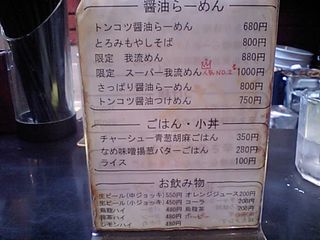 醤油らーめん
トンコツ醤油らーめん 680円
とろみもやしそば 800円
限定 我流めん 880円
限定 スーパー我流めん 人気NO.1 1000円
さっぱり醤油らーめん 800円
トンコツ醤油つけめん 750円
ごはん・小丼
チャーシュー青葱胡麻ごはん 350円
なめ味噌揚葱バターごはん 280円
ライス 100円
お飲み物
生ビール(中ジョッキ) 550円 オレンジジュース 200円
生ビール(小ジョッキ) 450円 コーラ 200円
烏龍ハイ 480円 烏龍茶 200円
抹茶ハイ 480円
レモンハイ 480円